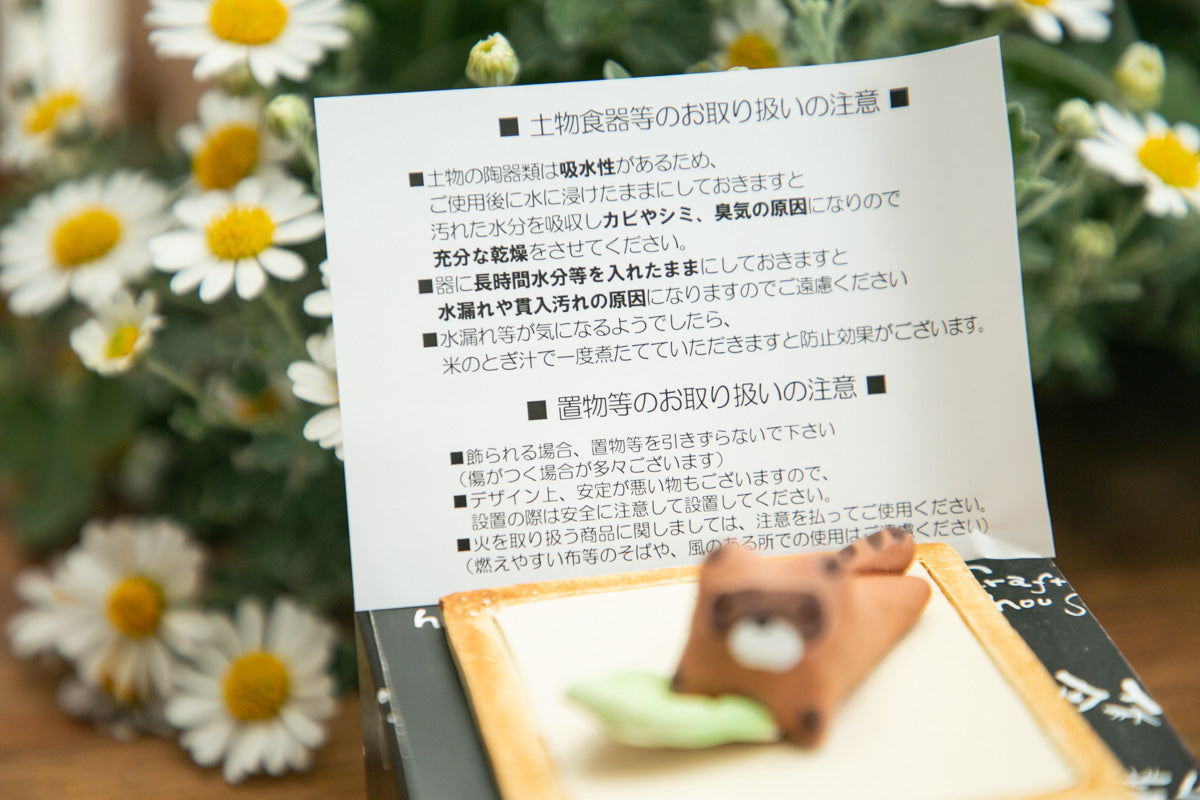 ■ 土物食器等のお取り扱いの注意 ■
■土物の陶器類は吸水性があるため、
ご使用後に水に浸けたままにしておきますと
汚れた水分を吸収しカビやシミ、臭気の原因になりなので
充分な乾燥をさせてください。
■器に長時間水分等を入れたままにしておきますと
水漏れや貫入汚れの原因になりますのでご遠慮ください
■水漏れ等が気になるようでしたら、
米のとぎ汁で一度煮たてていただきますと防止効果がございます。
■ 置物等のお取り扱いの注意 ■
■飾られる場合、置物等を引きずらないで下さい
(傷がつく場合が多々ございます)
■デザイン上、安定が悪い物もございますので、
設置の際は安全に注意して設置してください。
■火を取り扱う商品に関しましては、注意を払ってご使用ください。
(燃えやすい布等のそばや、風のある所での使用はご遠慮ください)
craft
hous